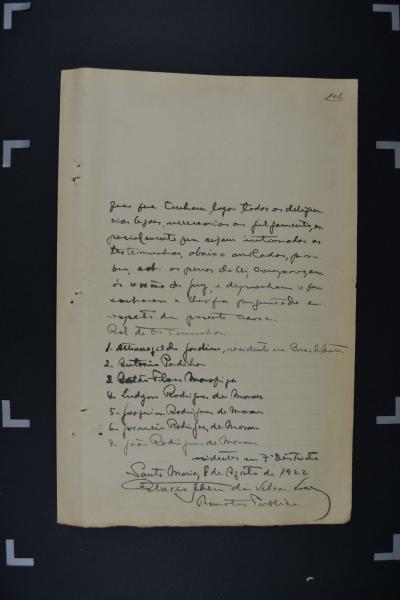 que tenham logar todos as deligen
cias legaes, necessarias ao julgamento, es
pecialmente que sejam intimadas as
testemunhas, abaixo arroladas, para
que, sob as penas da lei, compareçam
de juiz, e deponham o que
souberem e lhes for perguntado a
respeito da presente causa.
Rol de testemunhas:
1. Jardim, residente em
2. Antonio Padilha
3. Flores
4. Ludgero Rodrigues de Moraes
5. Joaquim Rodrigues de Moraes
6. Rodrigues de Moraes
7. João Rodrigues de Moraes
residentes no 7º Districto
Santa Maria, 8 de Agosto de 1922
da Silva
Promotor Publico